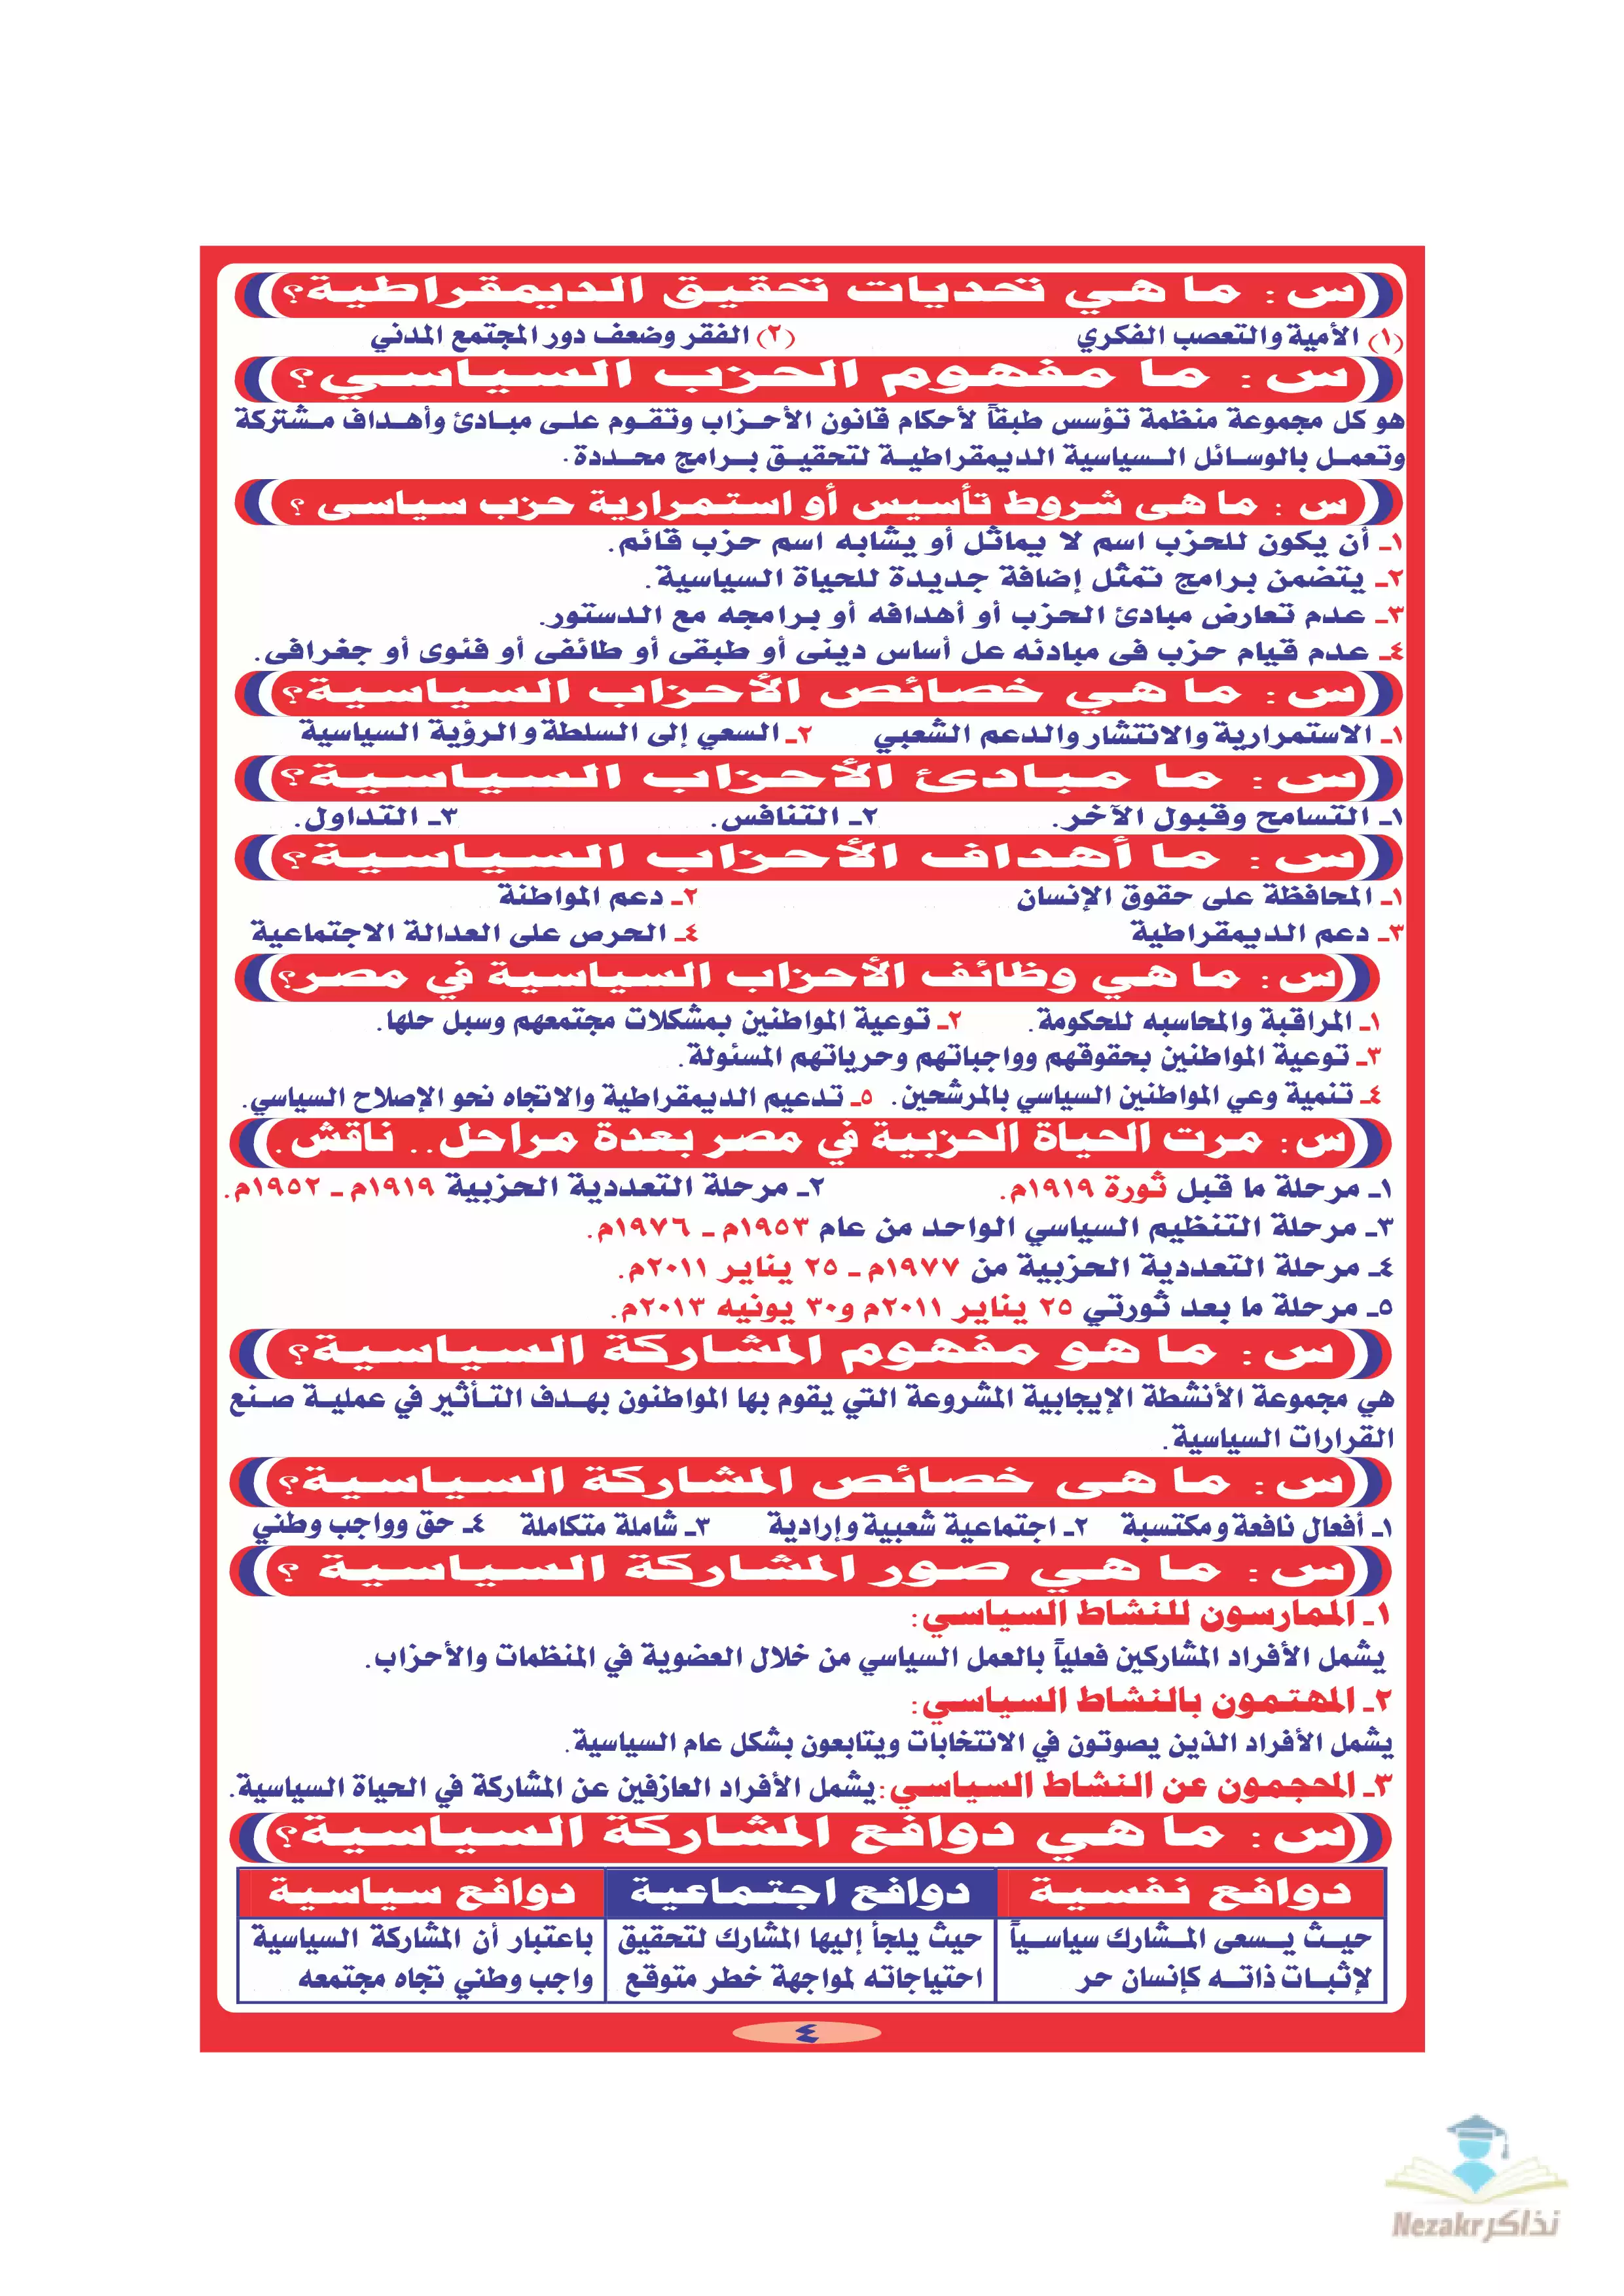 س : ما هي تحديات تحقيق الديمقراطية؟
(١) الأمية والتعصب الفكري (٢) الفقر وضعف دور المجتمع المدني
س : ما مفهوم الحزب السياسي؟
هو كل مجموعة منظمة تؤسس طبقاً لأحكام قانون الأحزاب وتقوم على مبادئ وأهداف مشتركة
وتعمل بالوسائل السياسية الديمقراطية لتحقيق برامج محددة.
س : ما هى شروط تأسيس أو استمرارية حزب سياسى ؟
١ـ أن يكون للحزب اسم لا يماثل أو يشابه اسم حزب قائم.
٢ـ يتضمن برامج تمثل إضافة جديدة للحياة السياسية.
٣ـ عدم تعارض مبادئ الحزب أو أهدافه أو برامجه مع الدستور.
٤ـ عدم قيام حزب فى مبادئه عل أساس دينى أو طبقى أو طائفى أو فئوى أو جغرافى.
س : ما هي خصائص الأحزاب السياسية؟
١ـ الاستمرارية والانتشار والدعم الشعبي ٢ـ السعي إلى السلطة و الرؤية السياسية
س : ما مبادئ الأحزاب السياسية؟
١ـ التسامح وقبول الآخر. ٢ـ التنافس. ٣ـ التداول.
س : ما أهداف الأحزاب السياسية؟
١ـ المحافظة على حقوق الإنسان ٢ـ دعم المواطنة
٣ـ دعم الديمقراطية ٤ـ الحرص على العدالة الاجتماعية
س : ما هي وظائف الأحزاب السياسية في مصر؟
١ـ المراقبة والمحاسبه للحكومة. ٢ـ توعية المواطنين بمشكلات مجتمعهم وسبل حلها.
٣ـ توعية المواطنين بحقوقهم وواجباتهم وحرياتهم المسئولة.
٤ـ تنمية وعي المواطنين السياسي بالمرشحين. ٥ـ تدعيم الديمقراطية والاتجاه نحو الإصلاح السياسي.
س : مرت الحياة الحزبية في مصر بعدة مراحل.. ناقش.
١ـ مرحلة ما قبل ثورة ١٩١٩م. ٢ـ مرحلة التعددية الحزبية ١٩١٩م ـ ١٩٥٢م.
٣ـ مرحلة التنظيم السياسي الواحد من عام ١٩٥٣م ـ ١٩٧٦م.
٤ـ مرحلة التعددية الحزبية من ١٩٧٧م ـ ٢٥ يناير ٢٠١١م.
٥ـ مرحلة ما بعد ثورتي ٢٥ يناير ٢٠١١م و٣٠ يونيه ٢٠١٣م.
س : ما هو مفهوم المشاركة السياسية؟
هي مجموعة الأنشطة الإيجابية المشروعة التي يقوم بها المواطنون بهدف التأثير في عملية صنع
القرارات السياسية.
س : ما هى خصائص المشاركة السياسية؟
١ـ أفعال نافعة ومكتسبة ٢ـ اجتماعية شعبية وإرادية ٣ـ شاملة متكاملة ٤ـ حق وواجب وطني
س : ما هي صور المشاركة السياسية ؟
١ـ الممارسون للنشاط السياسي:
يشمل الأفراد المشاركين فعلياً بالعمل السياسي من خلال العضوية في المنظمات والأحزاب.
٢ـ المهتمون بالنشاط السياسي:
يشمل الأفراد الذين يصوتون في الانتخابات ويتابعون بشكل عام السياسية.
٣ـ المحجمون عن النشاط السياسي: يشمل الأفراد العازفين عن المشاركة في الحياة السياسية.
س : ما هي دوافع المشاركة السياسية؟
دوافع نفسية دوافع اجتماعية دوافع سياسية
حيث يسعى المشارك سياسياً حيث يلجأ إليها المشارك لتحقيق باعتبار أن المشاركة السياسية
لإثبات ذاته كإنسان حر احتياجاته لمواجهة خطر متوقع واجب وطني تجاه مجتمعه
٤
Nezakr نذاكر